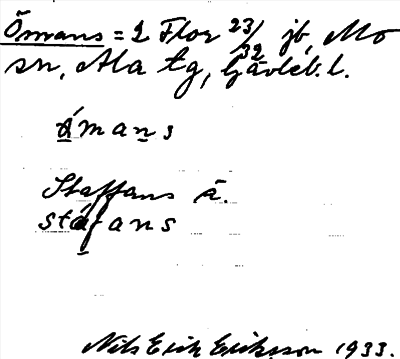 Ömans = 2 Flor 23/32 jb, Mo
sn, Ala tg, Gävleb. l.
ómans
Staffans ä.
stáfans
Nils Erik Eriksson 1933.